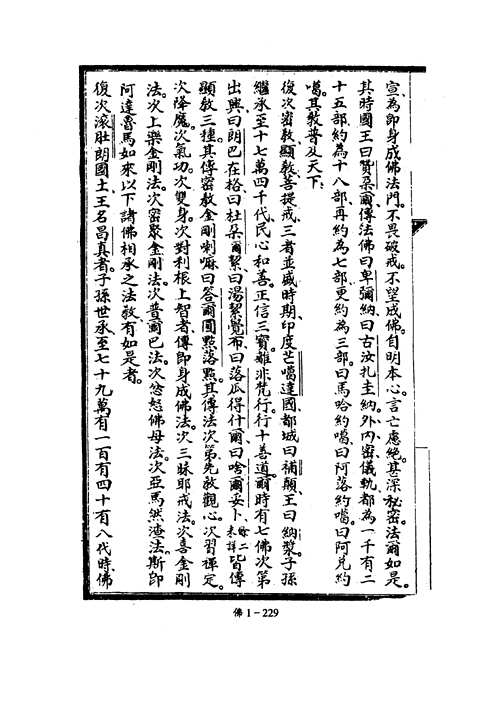 宣為即身成佛法門。不畏破戒。不望成佛。自明本心。言亡慮絕。甚深秘密。法爾如是。
其時國王曰贊朶爾、傳法佛曰卑彌納、曰古汝扎圭納。外內密儀軌都為一千有二
十五部約為十八部、再約為七部、更約為三部。曰馬哈約噶、曰阿落約噶。曰阿兌約
噶。其敎普及天下。
復次密敎、顯敎、菩提戒、三者並盛時期、印度芒噶達國、都城曰補顛、王曰納漿。子孫
繼承至十七萬四千代、民心和善。正信三寶、離非梵行。行十善道。爾時有七佛次第
出興、曰朗巴在格、曰杜朶爾絮、曰湯絮覺布、曰落瓜得什爾、曰唅爾妥卜、餘二七未詳皆傳
顯敎三種。其傳密敎金剛喇嘛曰答爾圓點落點。其傳法次第、先敎觀心。次習禪定。
次降魔。次氣功。次雙身。次對利根上智者、傳即身成佛法。次三昧耶戒法。次喜金剛
法。次上樂金剛法。次密聚金剛法。次普爾巴法。次忿怒佛母法。次亞馬然渣法。斯印
阿達魯馬如來以下諸佛相承之法敎有如是者。
復次滾肚朗國土、王名昌真者。子孫世承至七十九萬有一百有四十有八代時、佛
佛 1－229